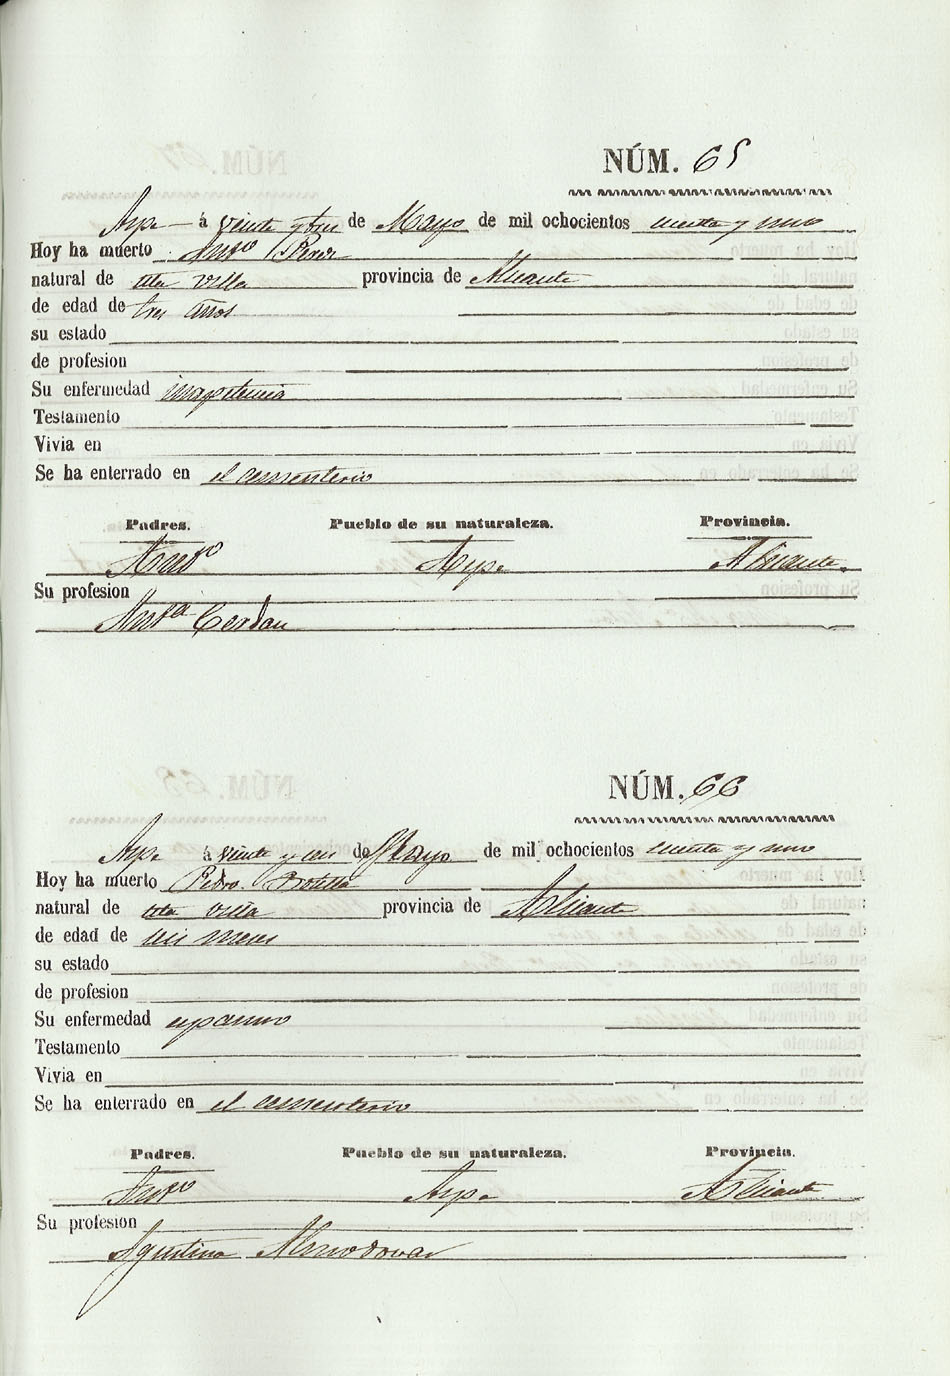 NÚM. 65
Aspe á veinte y tres de Mayo de mil ochocientos y uno
Hoy ha muerto Antº Perez
natural de esta villa provincia de Alicante
de edad de tres años
su estado
de profesion
Su enfermedad inapetencia
Testamento
Vivia en
Se ha enterrado en el cementerio
Padres. Pueblo de su naturaleza. Provincia.
Antº Aspe Alicante.
Su profesion
Antª Cerdan
NÚM. 66
Aspe á veinte y seis de Mayo de mil ochocientos y uno
Hoy ha muerto Pedro Botella
natural de esta villa provincia de Alicante
de edad de seis meses
su estado
de profesion
Su enfermedad espasmo
Testamento
Vivia en
Se ha enterrado en el cementerio
Padres. Pueblo de su naturaleza. Provincia.
Antº Aspe Alicante
Su profesion
Agustina Almodovar